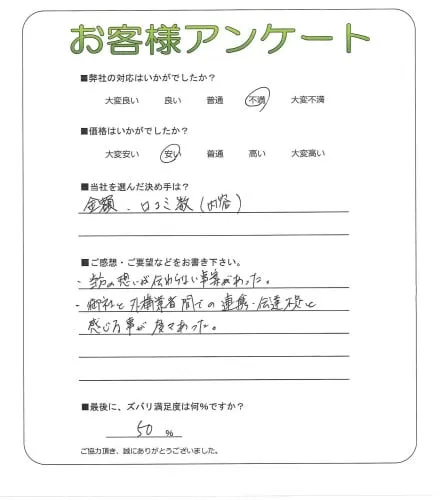 お客様アンケート
■弊社の対応はいかがでしたか?
大変良い 良い 普通 不満 大変不満
■価格はいかがでしたか?
大変安い 安い 普通 高い 大変高い
■当社を選んだ決め手は?
金額、口コミ数(内容)
■ご感想・ご要望などをお書き下さい。
・当方の想いが伝わらない事案があった。
・御社と外構業者間での連携・伝達不足と
感じる事が度々あった。
■最後に、ズバリ満足度は何%ですか?
50 %
ご協力頂き、誠にありがとうございました。